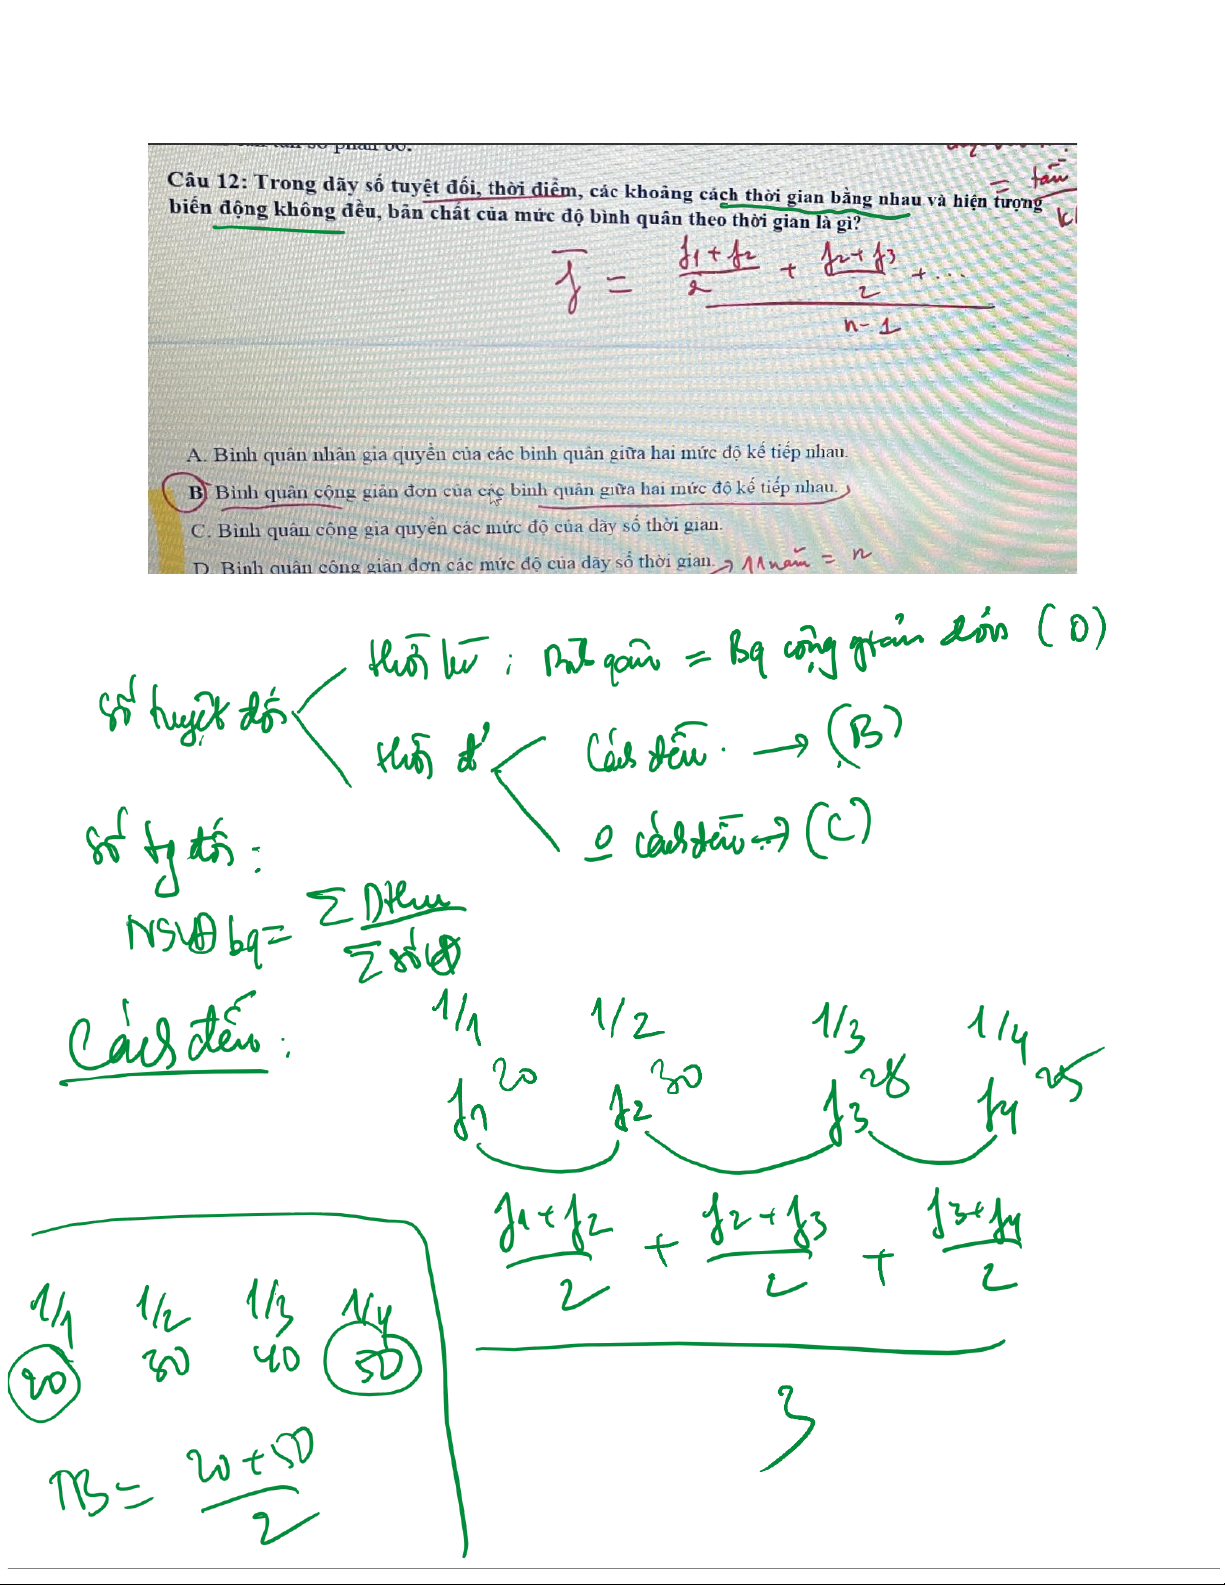 Câu 12: Trong dãy số tuyệt đối, thời điểm, các khoảng cách thời gian bằng nhau và hiện tượng
biến động không đều, bản chất của mức độ bình quân theo thời gian là gì?
y = y1 + y2 / 2 + y2 + y3 / 2 + ...
n - 1
A. Bình quân nhân gia quyền của các bình quân giữa hai mức độ kế tiếp nhau.
B. Bình quân cộng giản đơn của các bình quân giữa hai mức độ kế tiếp nhau.
C. Bình quân cộng gia quyền các mức độ của dãy số thời gian.
D. Bình quân cộng giản đơn các mức độ của dãy số thời gian. → 11 năm = n
thời kì : Bình quân = Bq cộng giản đơn (D)
số tuyệt đối
thời đ' Cách đều → (B)
0 cách đều → (C)
số tg đối :
NSLĐ bq = Σ Dthu / Σ số LĐ
Cách đều :
1/1 1/2 1/3 1/4
y1 20 y2 30 y3 28 y4 25
y1 + y2 / 2 + y2 + y3 / 2 + y3 + y4 / 2
3
1/1 1/2 1/3 1/4
20 30 40 50
TB = 20 + 50 / 2